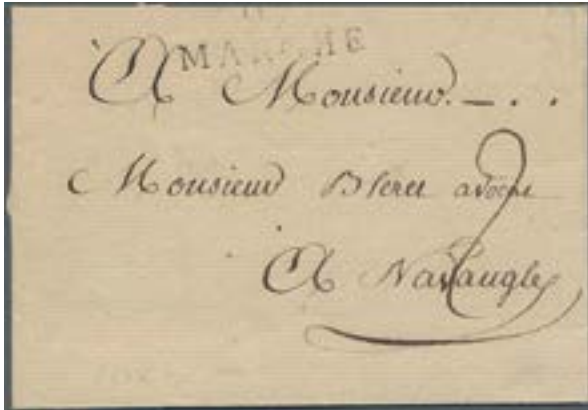 MARCHE
A Monsieur. — . .
Monsieur Bleret avocat
A Nassaugle
2